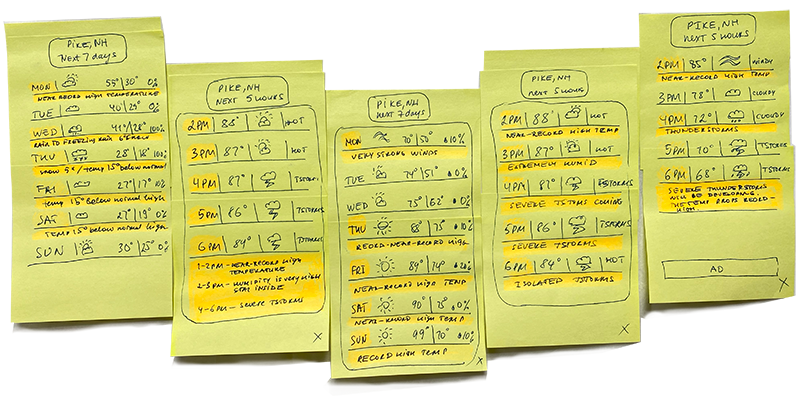 PIKE, NH
Next 7 days
MON 55° 30° 0%
NEAR RECORD HIGH TEMPERATURE
TUE 40° 29° 0%
WED 41° 28° 100%
RAIN TO FREEZING RAIN
THU 28° 18° 100%
SNOW 5" / TEMP 15° BELOW NORMAL
FRI 27° 17° 10%
TEMP 15° BELOW NORMAL HIGH
SAT 27° 19° 0%
TEMP 15° BELOW NORMAL HIGH
SUN 30° 25° 0%
PIKE, NH
NEXT 5 HOURS
2PM 88° HOT
3PM 87° HOT
4PM 87° TSTORM
5PM 86° TSTORMS
6PM 84° TSTORMS
1-2PM - NEAR-RECORD HIGH
TEMPERATURE
2-5PM - HUMIDITY IS VERY HIGH
STAY INSIDE
4-6PM - SEVERE TSTORMS
X
PIKE, NH
next 7 days
MON 70° 50° 10%
VERY STRONG WINDS
TUE 74° 51° 0%
WED 75° 62° 0%
THU 88° 75° 10%
RECORD-NEAR-RECORD HIGH
FRI 89° 74° 20%
NEAR-RECORD HIGH TEMP
SAT 90° 75° 0%
NEAR-RECORD HIGH TEMP
SUN 99° 70° 10%
RECORD HIGH TEMP
X
PIKE, NH
next 5 hours
2PM 88° HOT
NEAR-RECORD HIGH TEMP
3PM 87° HOT
EXTREMELY HUMID
4PM 87° TSTORMS
SEVERE TSTMS COMING
5PM 86° TSTORMS
SEVERE TSTORMS
6PM 84° HOT
ISOLATED TSTORMS
X
PIKE, NH
NEXT 5 HOURS
2PM 85° WINDY
NEAR-RECORD HIGH TEMP
3PM 78° CLOUDY
4PM 72° CLOUDY
THUNDERSTORMS
5PM 70° TSTORMS
6PM 68° TSTORMS
SEVERE THUNDERSTORMS
WILL BE DEVELOPING.
THE TEMP DROPS RECORD-
HIGH
AD
X